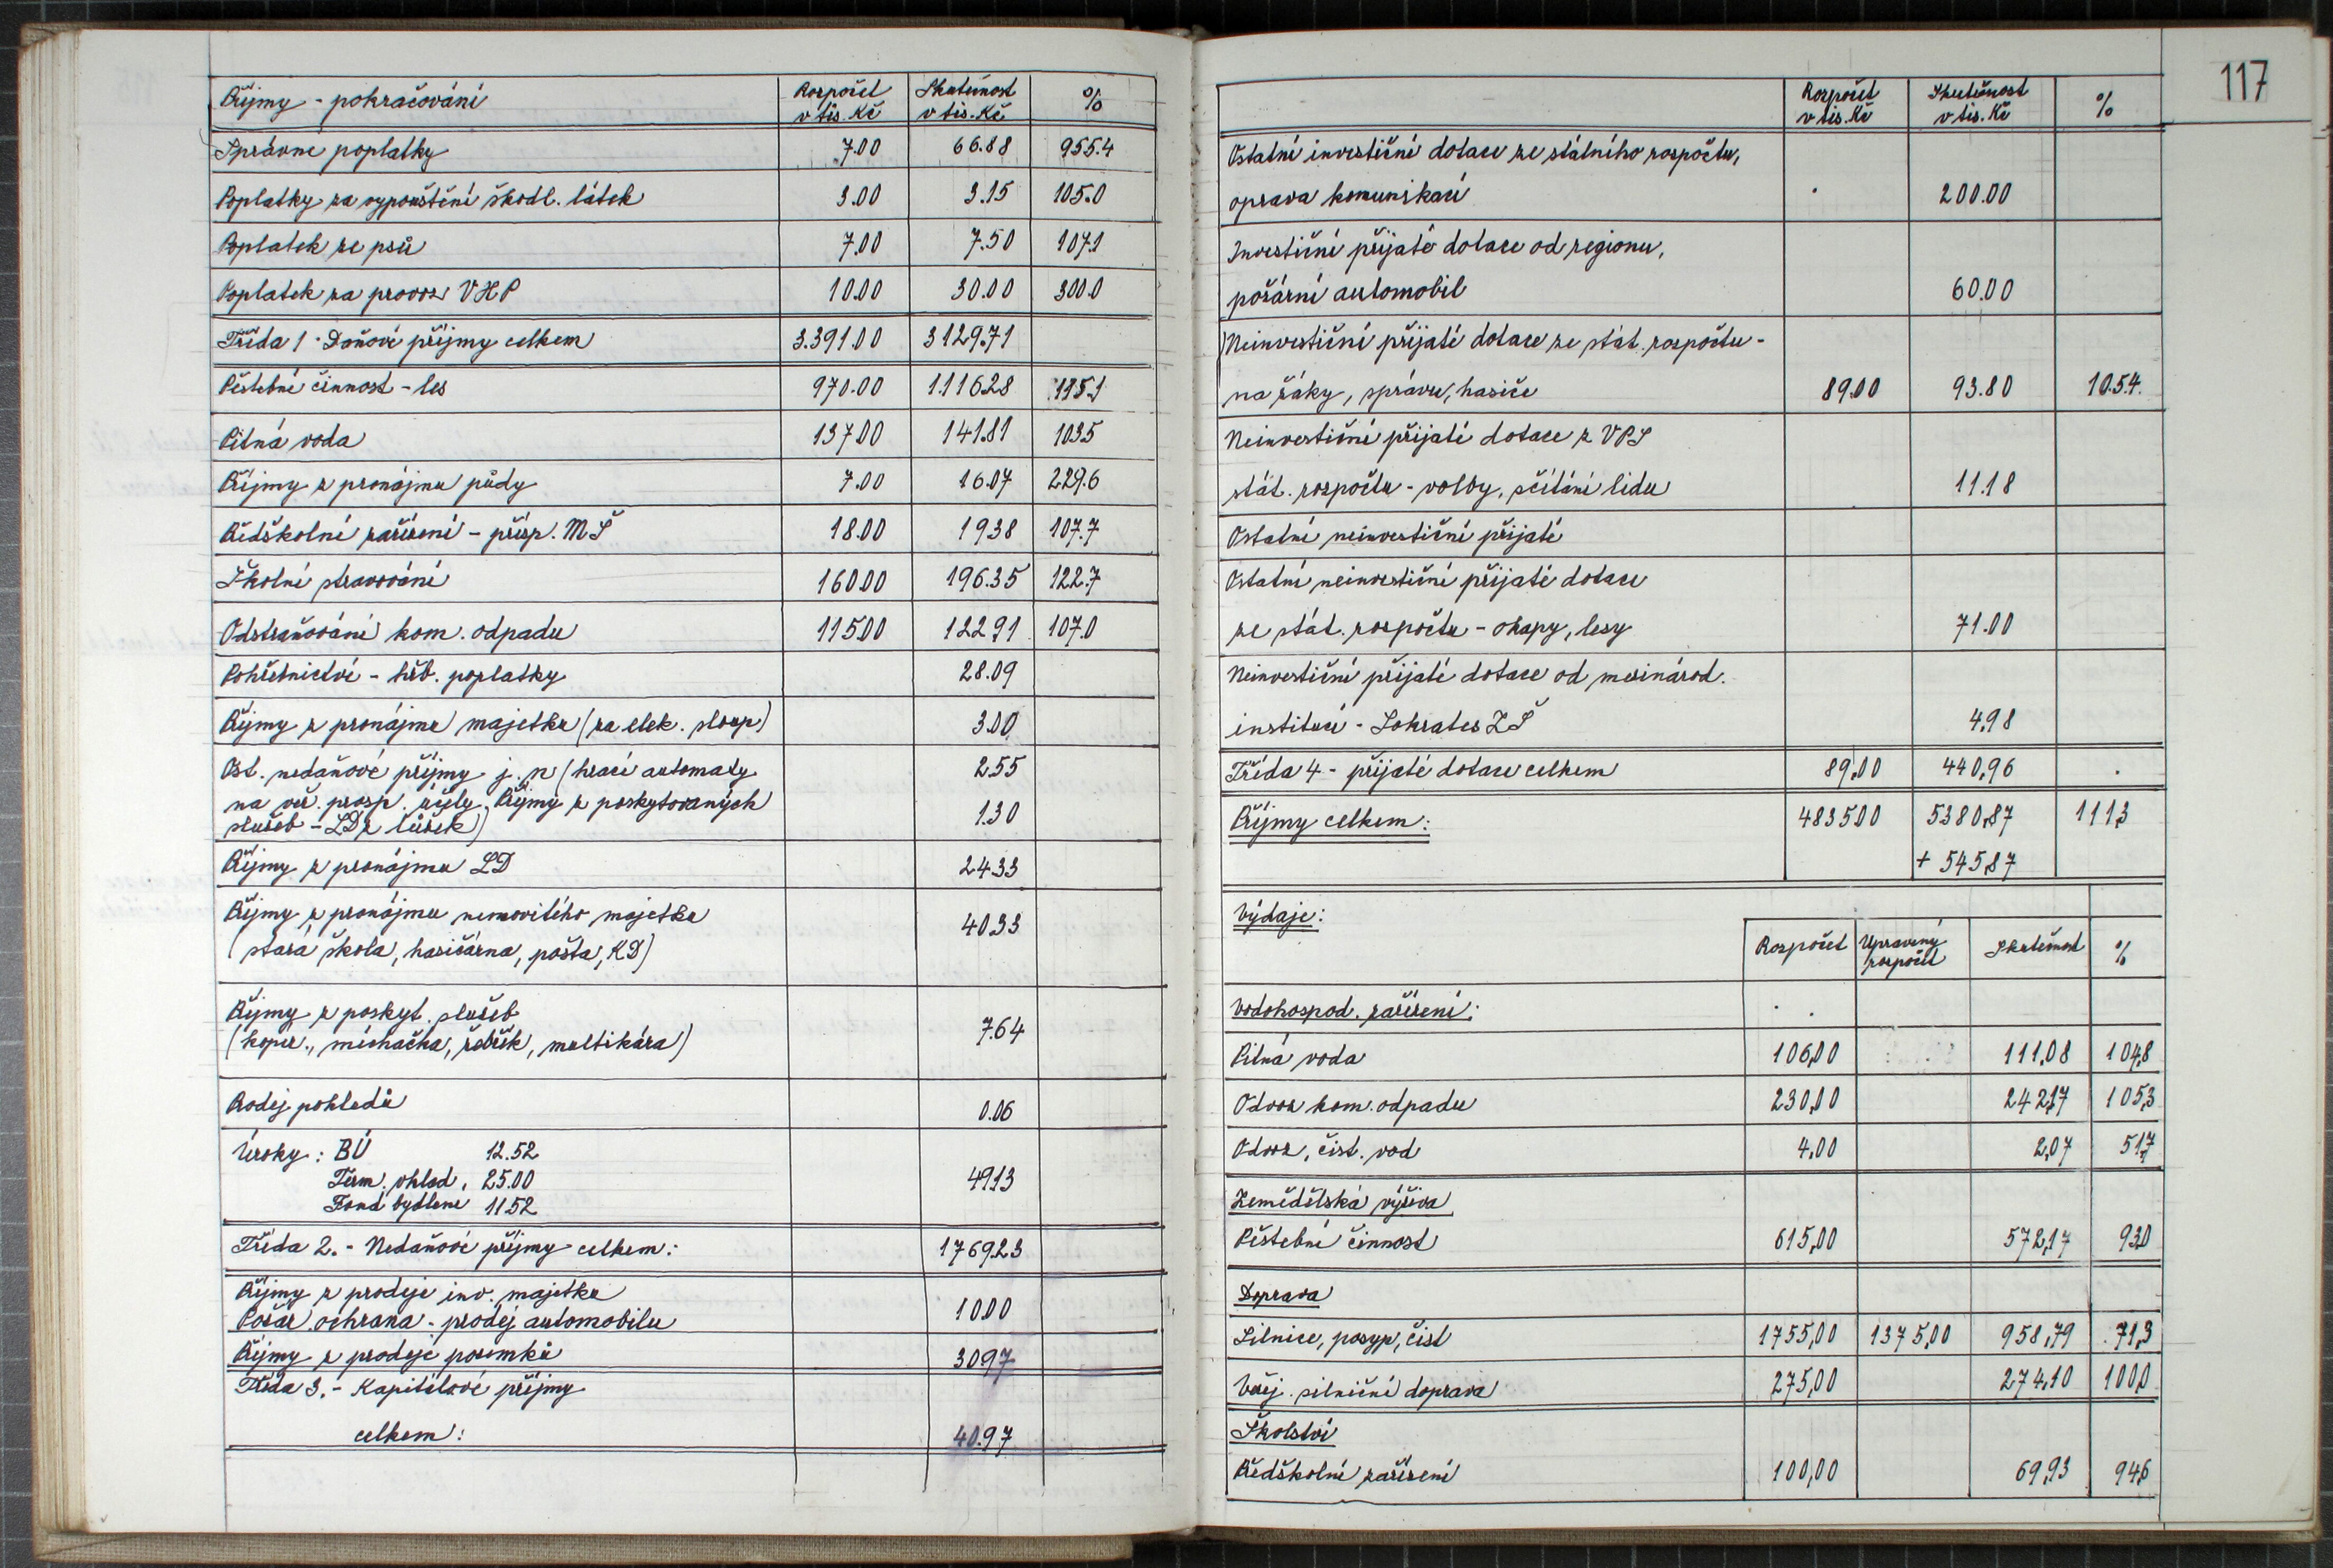 Příjmy - pokračování Rozpočet v tis. Kč Skutečnost v tis. Kč %
Správne poplatky 7.00 66.88 955.4
Poplatky za vypouštění škodl. látek 3.00 3.15 105.0
Poplatek ze psů 7.00 7.50 107.1
Poplatek za provoz VHP 10.00 30.00 300.0
Třída 1 - Daňové příjmy celkem 3.391.00 3129.71
Pěstební činnost - les 970.00 1.116.28 115.1
Pitná voda 137.00 141.81 103.5
Příjmy z pronájmu půdy 7.00 16.07 229.6
Předškolní zařízení - přísp. MŠ 18.00 19.38 107.7
Školní stravování 160.00 196.35 122.7
Odstraňování kom. odpadu 115.00 122.91 107.0
Pohřebnictví - hřb. poplatky 28.09
Příjmy z pronájmu majetku (za elek. sloup) 3.00
Ost. nedaňové příjmy j. n (hrací automaty 2.55
na veř. prosp. účely, Příjmy z poskytovaných
služeb - LD z lůžek) 1.30
Příjmy z pronájmu LD 24.33
Příjmy z pronájmu nemovitého majetku 40.33
(stará škola, hasičárna, pošta, KD)
Příjmy z poskyt. služeb
(kopír., míchačka, řebřík, multikára) 7.64
Prodej pohledů 0.06
Úroky: BÚ 12.52
Term. vklad. 25.00 49.13
Fond bydlení 11.52
Třída 2. - Nedaňové příjmy celkem: 1769.23
Příjmy z prodeje inv. majetku
Požár. ochrana - prodej automobilu 10.00
Příjmy z prodeje pozemků 30.97
Třída 3. - Kapitálové příjmy
celkem: 40.97
117
Rozpočet v tis. Kč Skutečnost v tis. Kč %
Ostatní investiční dotace ze státního rozpočtu,
oprava komunikací 200.00
Investiční přijaté dotace od regionu,
požární automobil 60.00
Neinvestiční přijaté dotace ze stát. rozpočtu -
na žáky, správu, hasiče 89.00 93.80 105.4
Neinvestiční přijaté dotace z VPS
stát. rozpočtu - volby, sčítání lidu 11.18
Ostatní neinvestiční přijaté
Ostatní neinvestiční přijaté dotace
ze stát. rozpočtu - okapy, lesy 71.00
Neinvestiční přijaté dotace od mezinárod.
institucí - Sokrates ZŠ 4,98
Třída 4 - přijaté dotace celkem 89,00 440,96
Příjmy celkem: 4835.00 5380,87 111,3
+ 545,87
Výdaje:
Rozpočet Upravený rozpočet Skutečnost %
Vodohospod. zařízení:
Pitná voda 106,00 111,08 104,8
Odvoz kom. odpadu 230,00 242,17 105,3
Odvoz, čist. vod 4,00 2,07 51,7
Zemědělská výživa
Pěstební činnost 615,00 572,17 93,0
Doprava
Silnice, posyp, čist 1755,00 1375,00 958,79 71,3
Veřej. silniční doprava 275,00 274,10 100,0
Školství
Předškolní zařízení 100,00 69,93 94,6